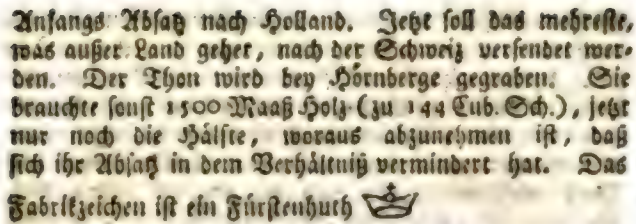 Anfangs Absatz nach Holland. Jetzt soll das mehreste,
was außer Land gehet, nach der Schweiz versendet wer-
den. Der Thon wird bey Hörnberge gegraben. Sie
brauchte sonst 1500 Maaß Holz (zu 144 Cub. Sch.), jetzt
nur noch die Hälfte, woraus abzunehmen ist, daß
sich ihr Absatz in dem Verhältniß vermindert hat. Das
Fabrikzeichen ist ein Fürstenhuth